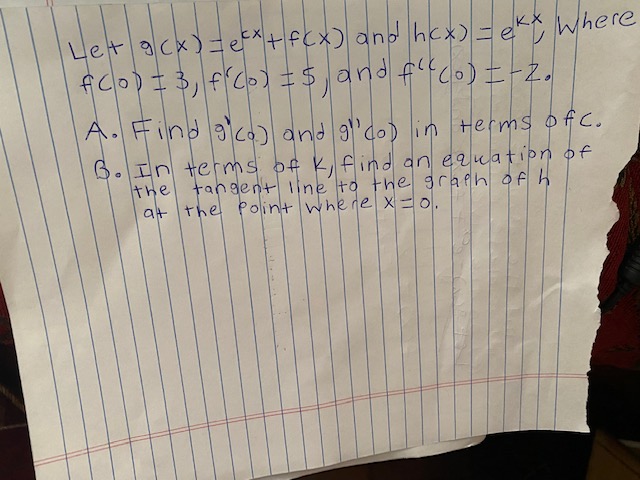 Let g(x)=e^cx+f(x) and h(x)=e^kx, where
f(0)=3, f'(0)=5, and f''(0)=-2.
A. Find g'(0) and g''(0) in terms of c.
B. In terms of k, find an equation of
the tangent line to the graph of h
at the point where x=0.